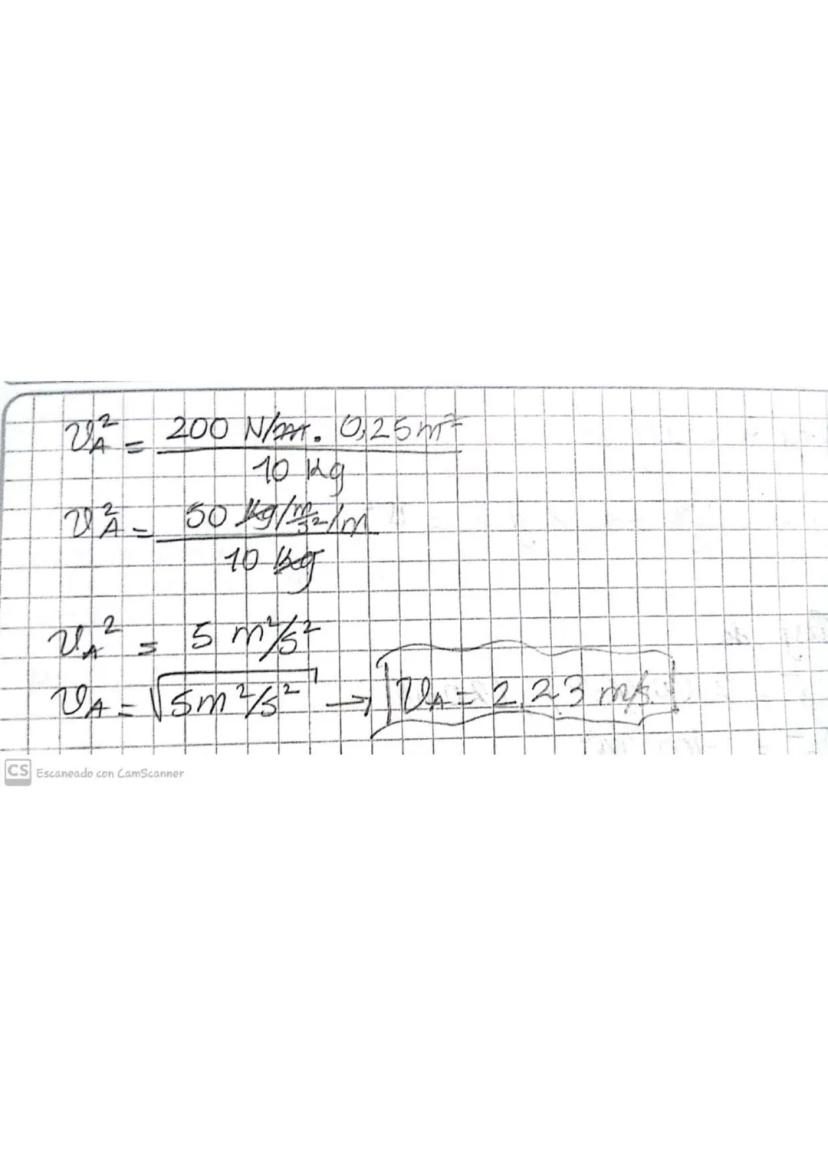 v_A² = 200 N/m. 0,25 m² / 10 kg
v_A² = 50 kg/m/s²/m / 10 kg
v_A² = 5 m²/s²
v_A = √5m²/s² → v_A = 2,23 m/s
CS Escaneado con CamScanner